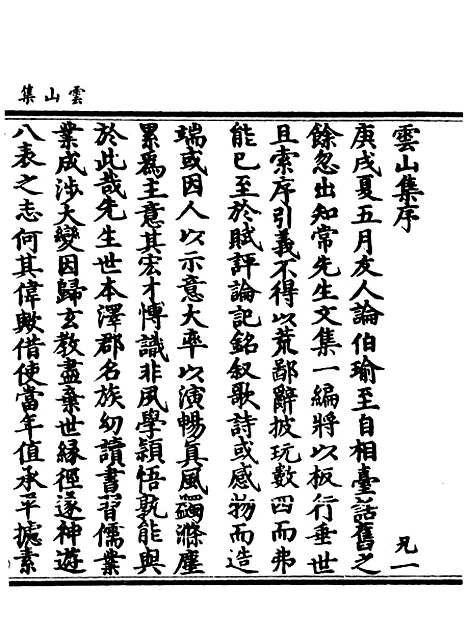 雲山集
雲山集序
兄一
庚戌夏五月友人論伯瑜至自相臺話舊之
餘忽出知常先生文集一編將以板行垂世
且索序引義不得以荒鄙辭披玩數四而弗
能已至於賦評論記銘叙歌詩或感物而造
端或因人以示意大率以演暢真風蠲滌塵
累爲主意其宏才愽識非夙學頴悟孰能與
於此哉先生世本澤郡名族幼讀書習儒業
業成涉大變因歸玄教盡棄世緣徑遂神遊
八表之志何其偉歟借使當年值承平攄素